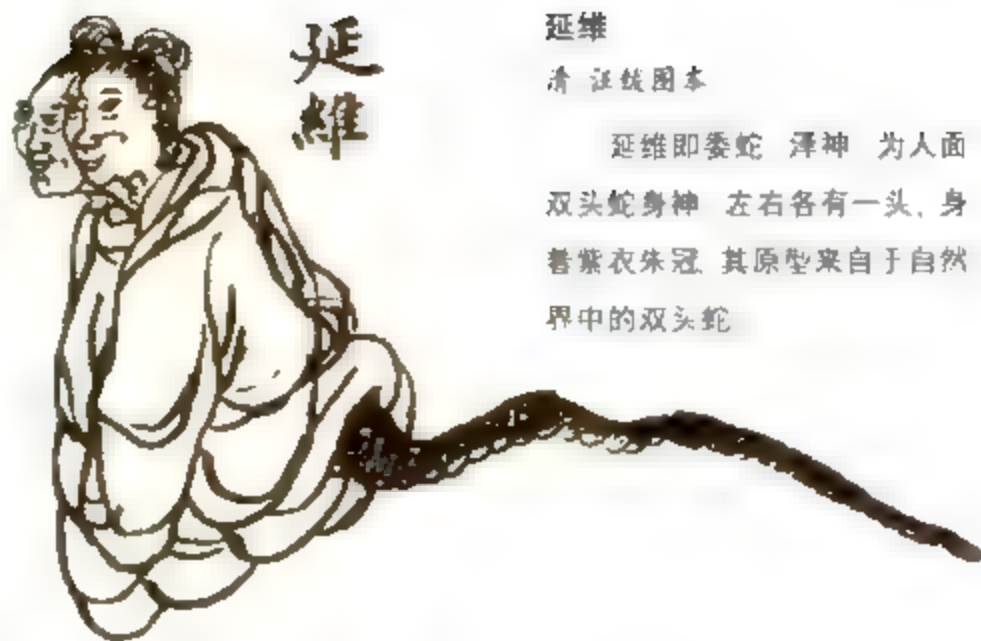 延維
延维
清 汪绂图本
延维即委蛇 泽神 为人面
双头蛇身神 左右各有一头、身
着紫衣朱冠 其原型来自于自然
界中的双头蛇